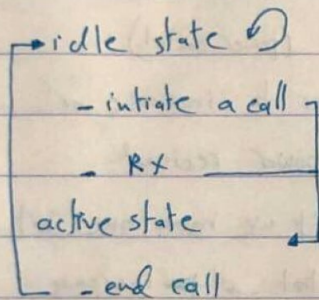 idle state
- intiate a call
- RX
active state
- end call